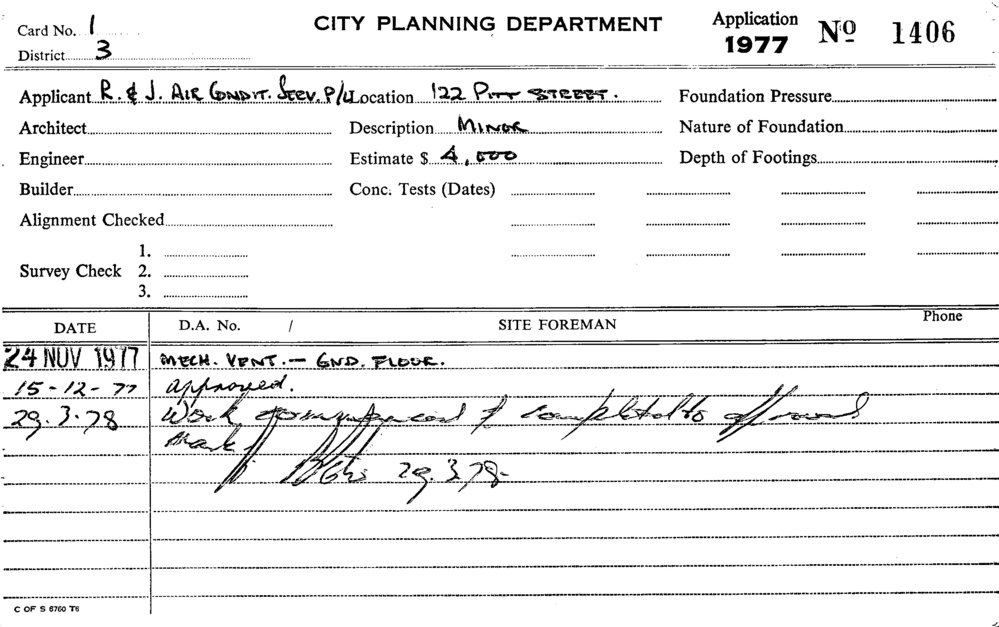 Card No. 1
CITY PLANNING DEPARTMENT
Application
1977 Nº 1406
District 3
Applicant R. & J. AIR CONDIT. SERV. P/L Location 122 PITT STREET. Foundation Pressure
Architect Description MINOR Nature of Foundation
Engineer Estimate $ 4,000 Depth of Footings
Builder Conc. Tests (Dates)
Alignment Checked
1.
Survey Check 2.
3.
DATE D.A. No. / SITE FOREMAN Phone
24 NOV 1977 MECH. VENT. — GND. FLOOR.
15-12-77 approved.
29.3.78 Work commenced & completed to
29.3.78
C OF S 6760 T6